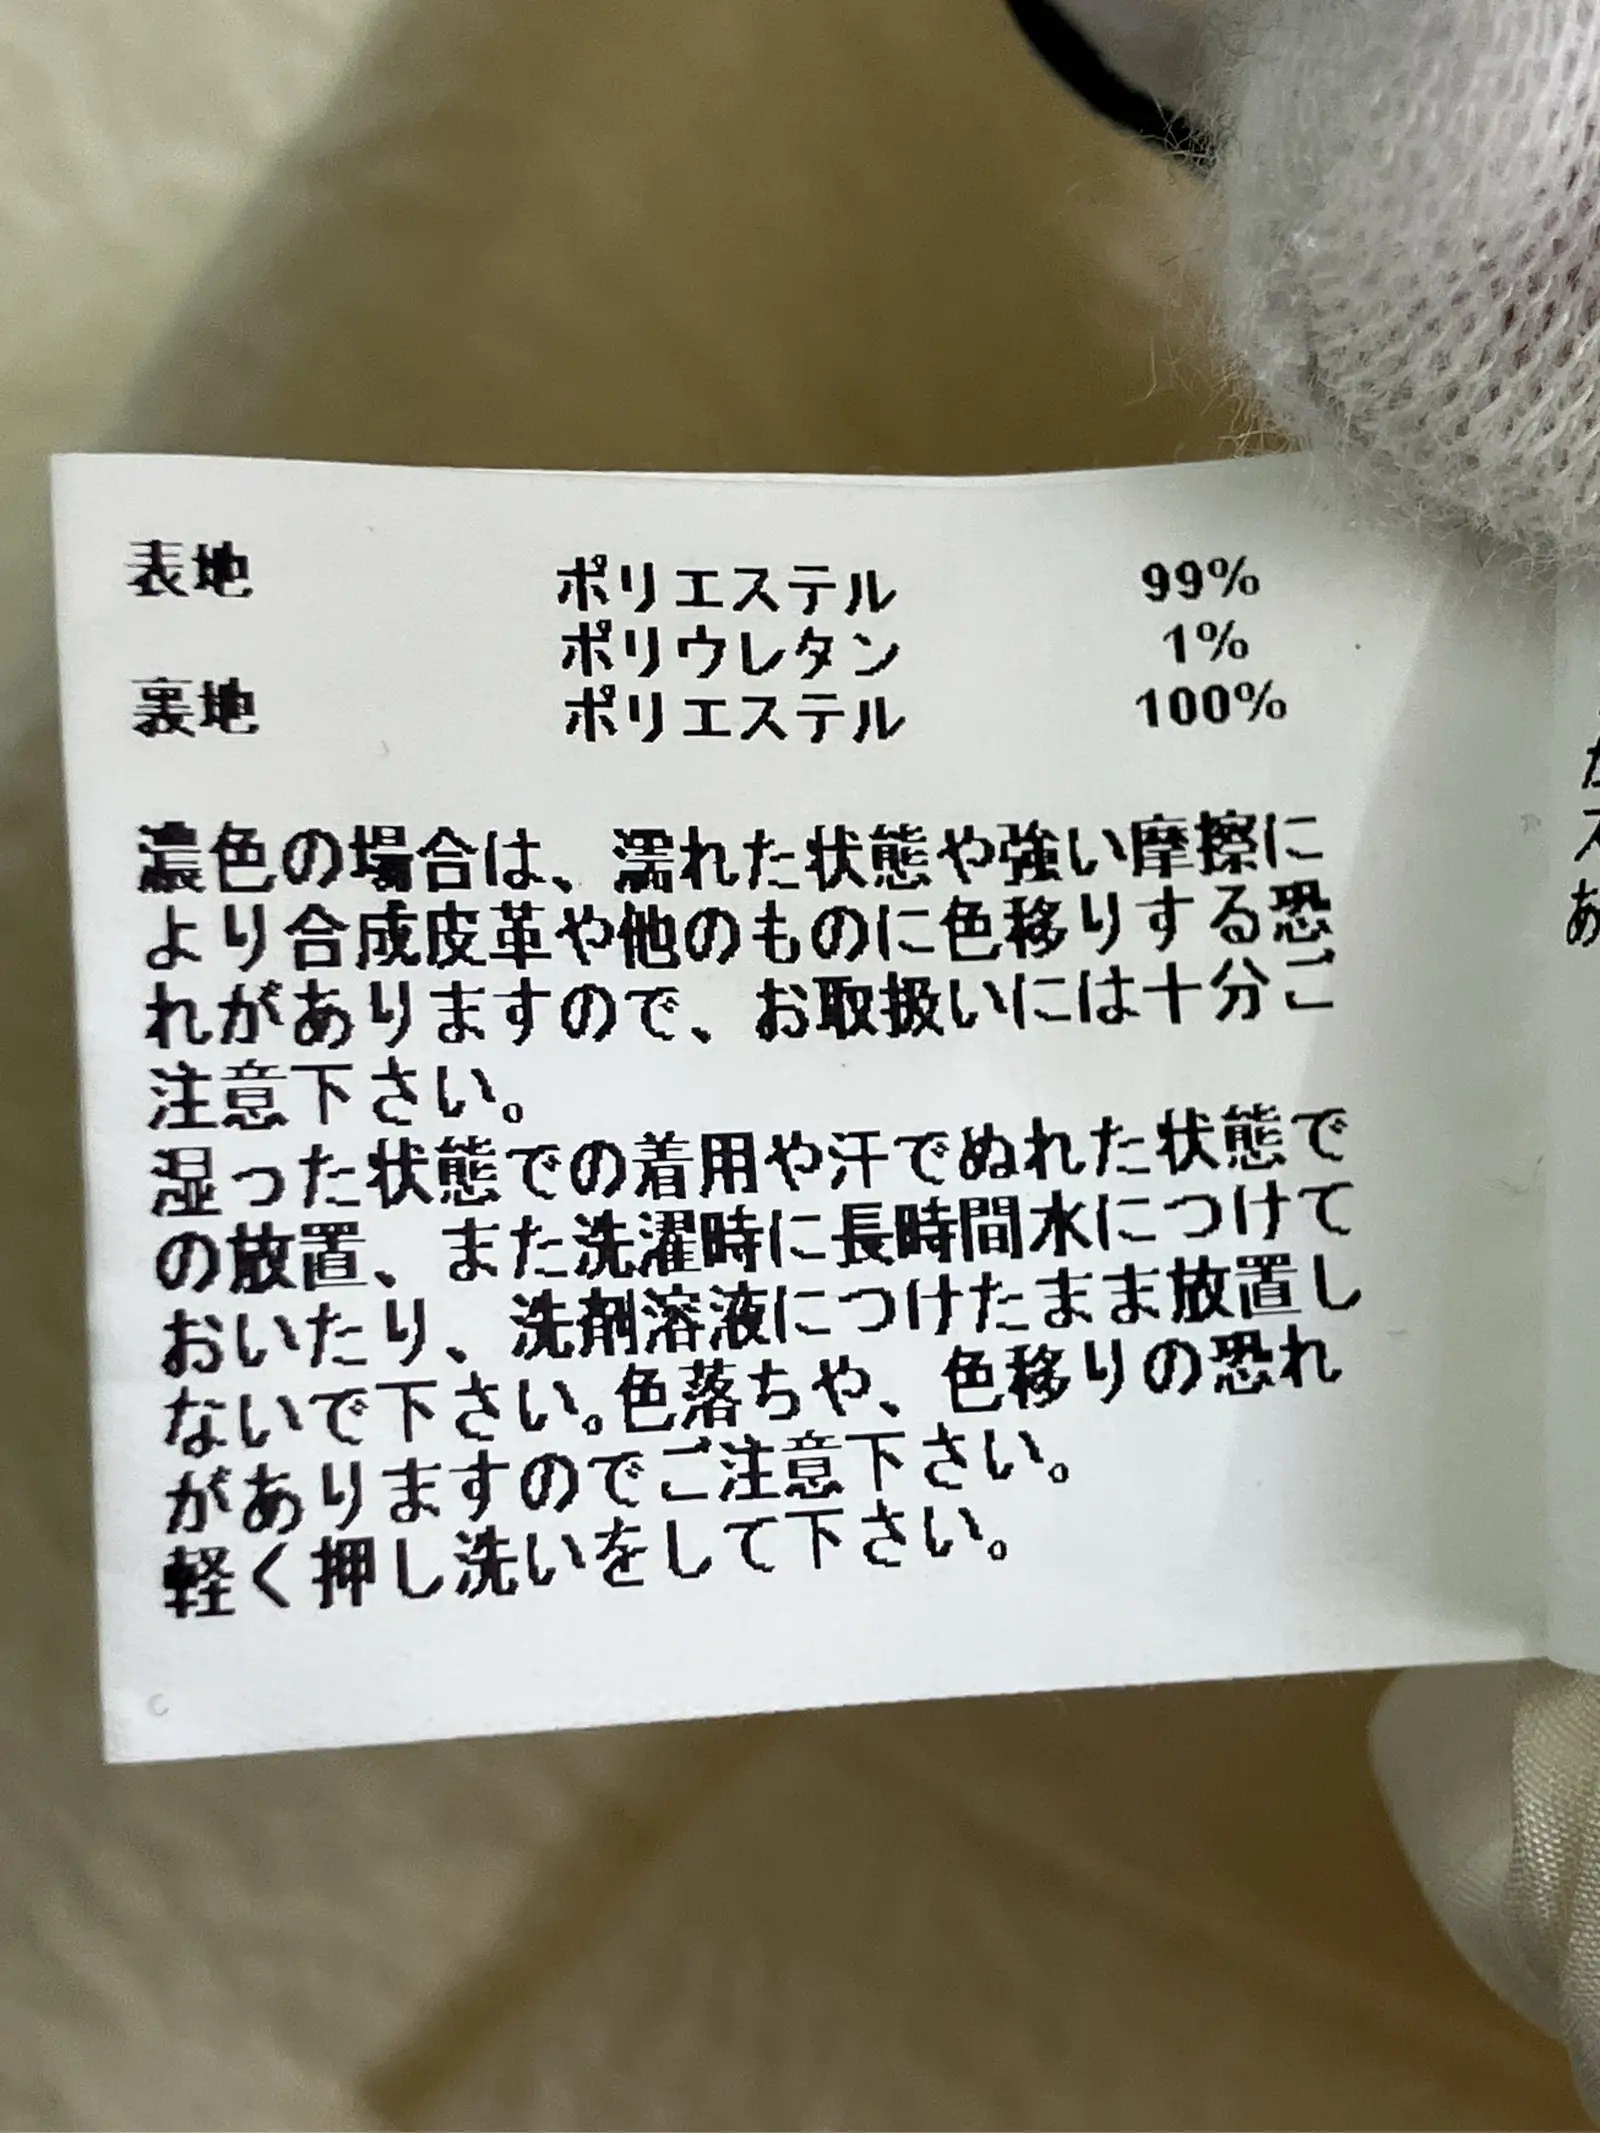 表地 ポリエステル 99%
ポリウレタン 1%
裏地 ポリエステル 100%
濃色の場合は、濡れた状態や強い摩擦に
より合成皮革や他のものに色移りする恐
れがありますので、お取扱いには十分ご
注意下さい。
湿った状態での着用や汗でぬれた状態で
の放置、また洗濯時に長時間水につけて
おいたり、洗剤溶液につけたまま放置し
ないで下さい。色落ちや、色移りの恐れ
がありますのでご注意下さい。
軽く押し洗いをして下さい。